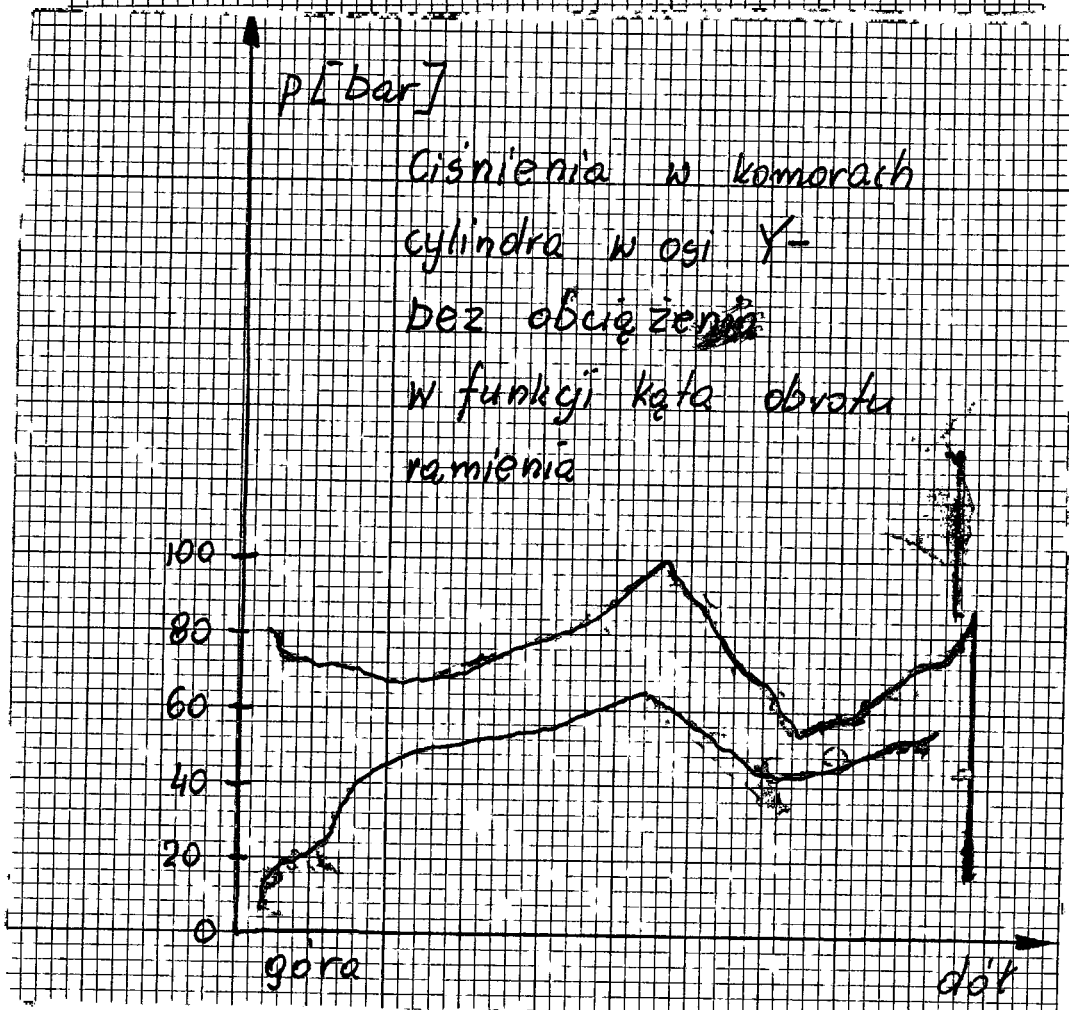 p[bar]
Ciśnienia w komorach
cylindra w osi Y-
bez obciążenia
w funkcji kąta obrotu
ramienia
100
80
60
40
20
0
góra
dół